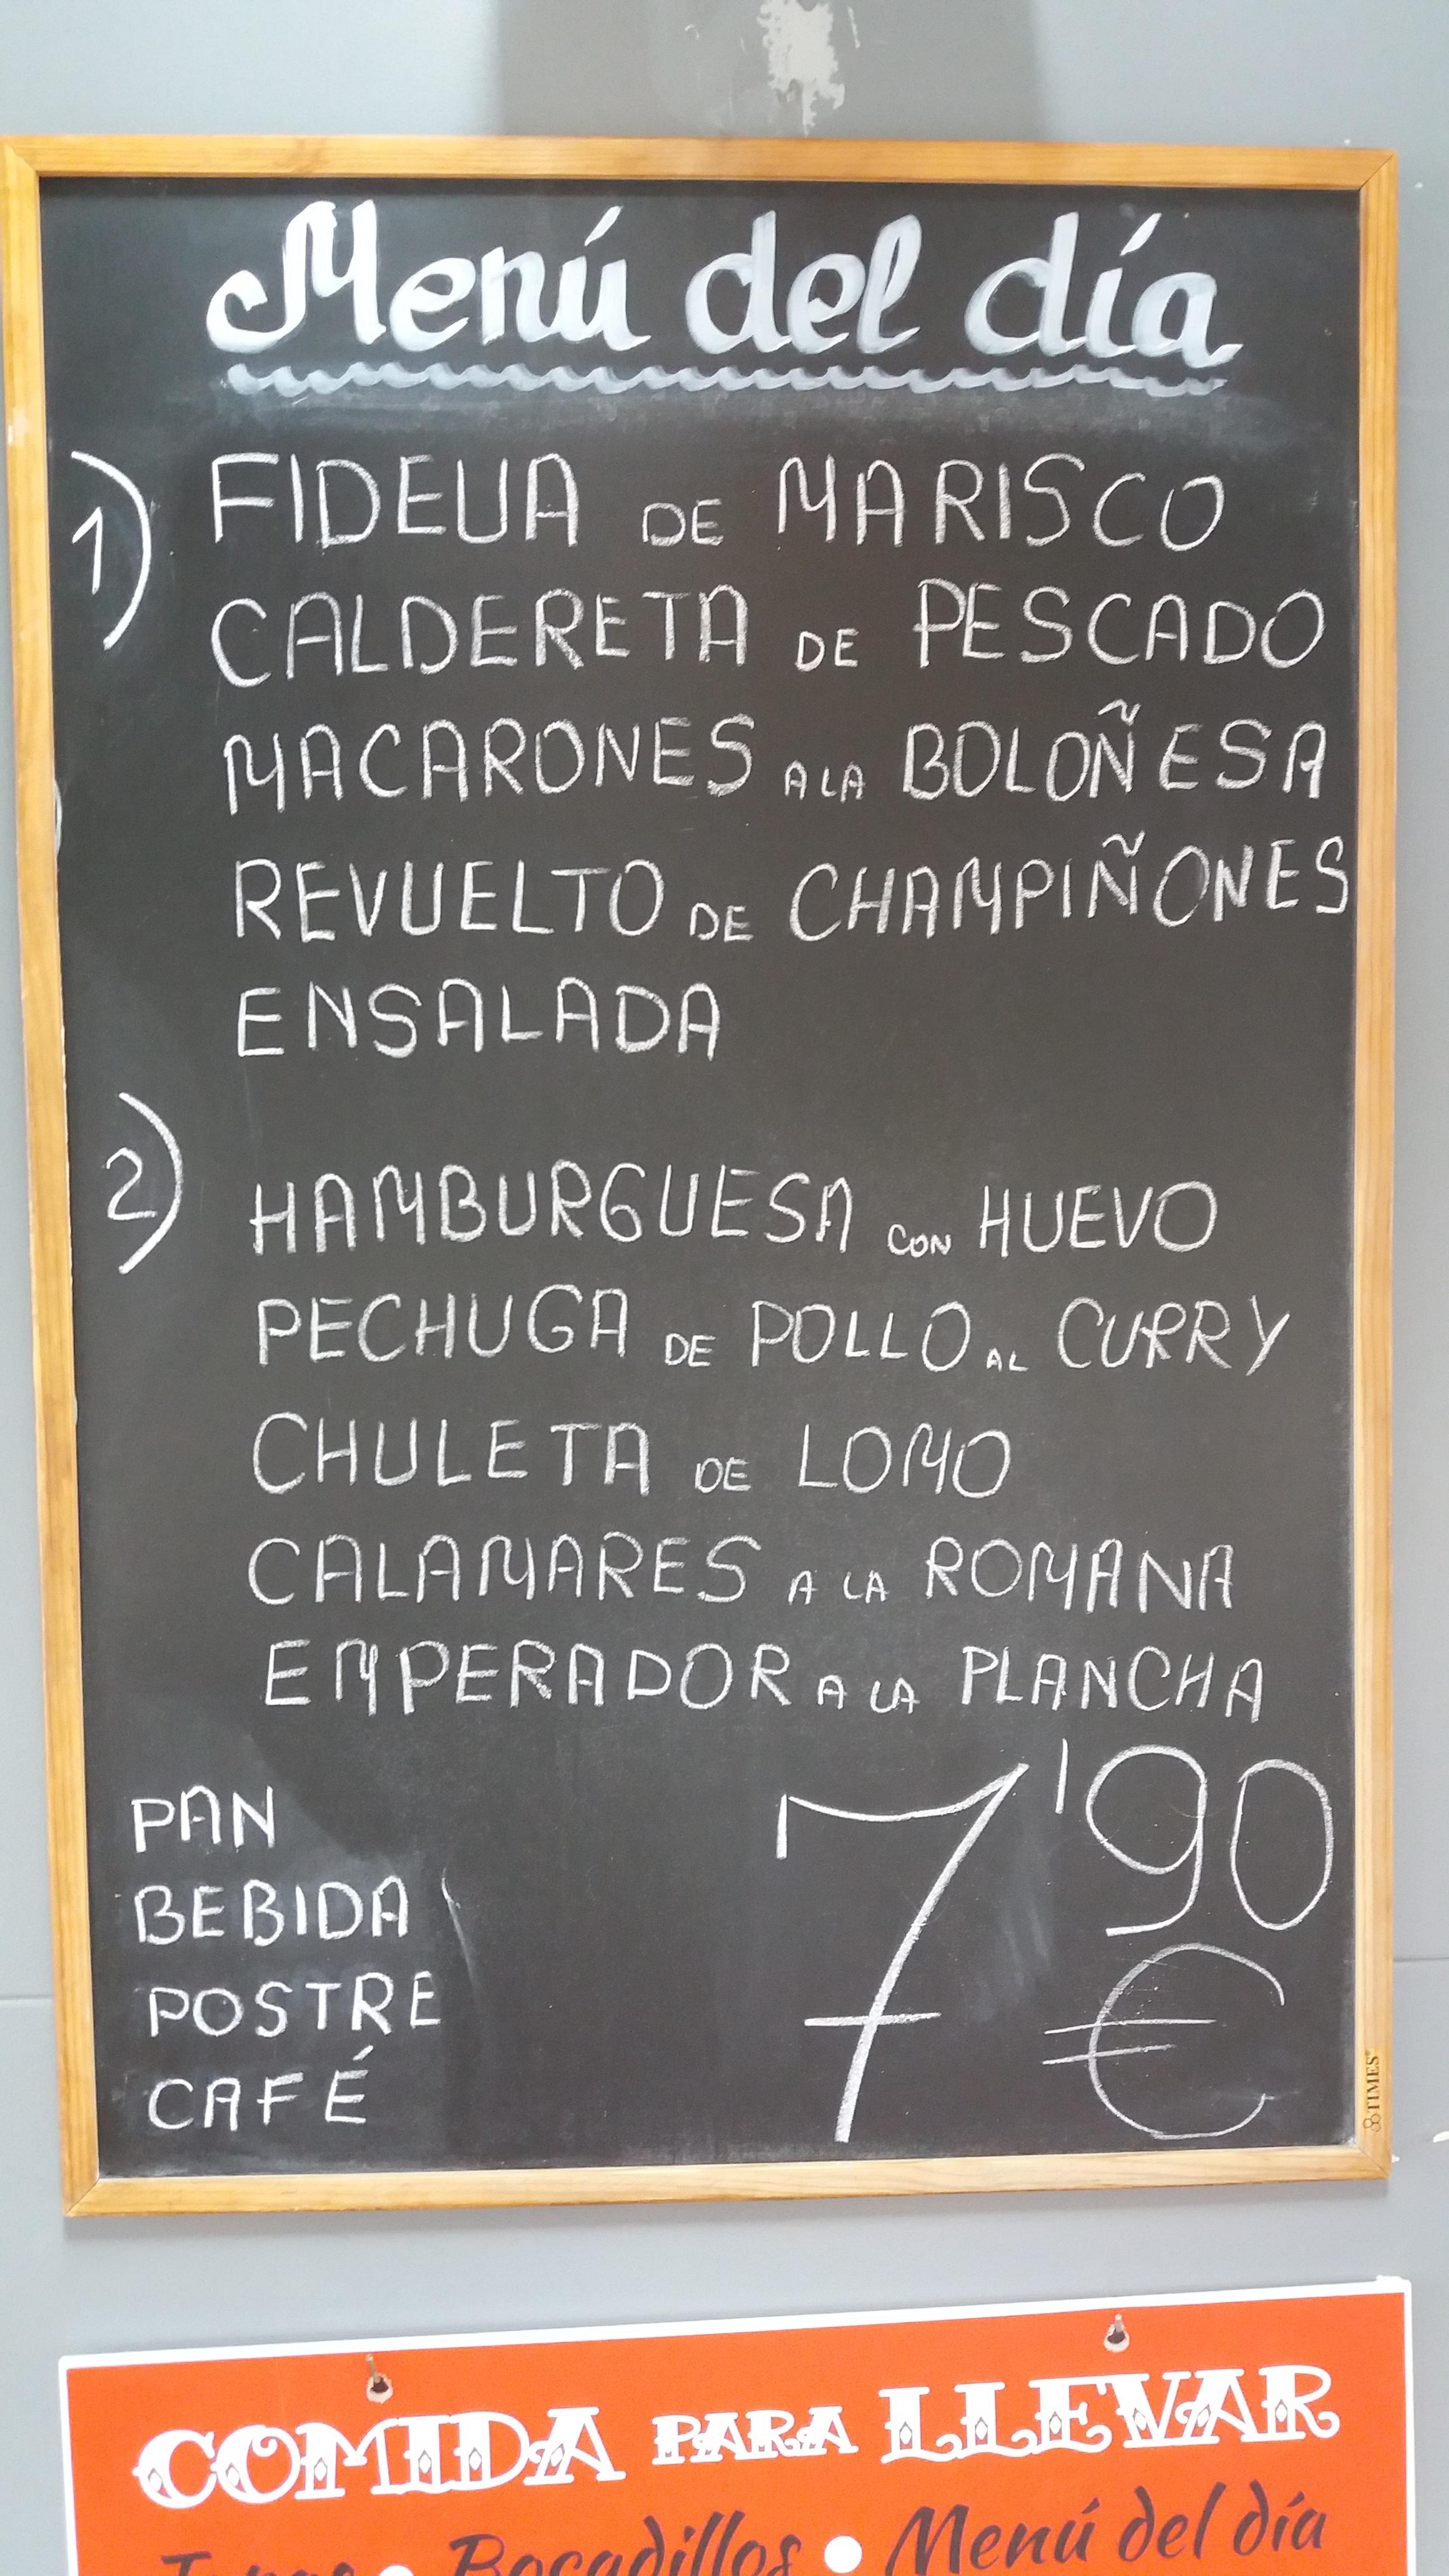 Menú del día
1) FIDEUA DE MARISCO
CALDERETA DE PESCADO
MACARONES A LA BOLOÑESA
REVUELTO DE CHAMPIÑONES
ENSALADA
2) HAMBURGUESA CON HUEVO
PECHUGA DE POLLO AL CURRY
CHULETA DE LOMO
CALAMARES A LA ROMANA
EMPERADOR A LA PLANCHA
PAN
BEBIDA
POSTRE
CAFÉ
7'90
€
TIMES
COMIDA PARA LLEVAR
Tapas • Bocadillos • Menú del día